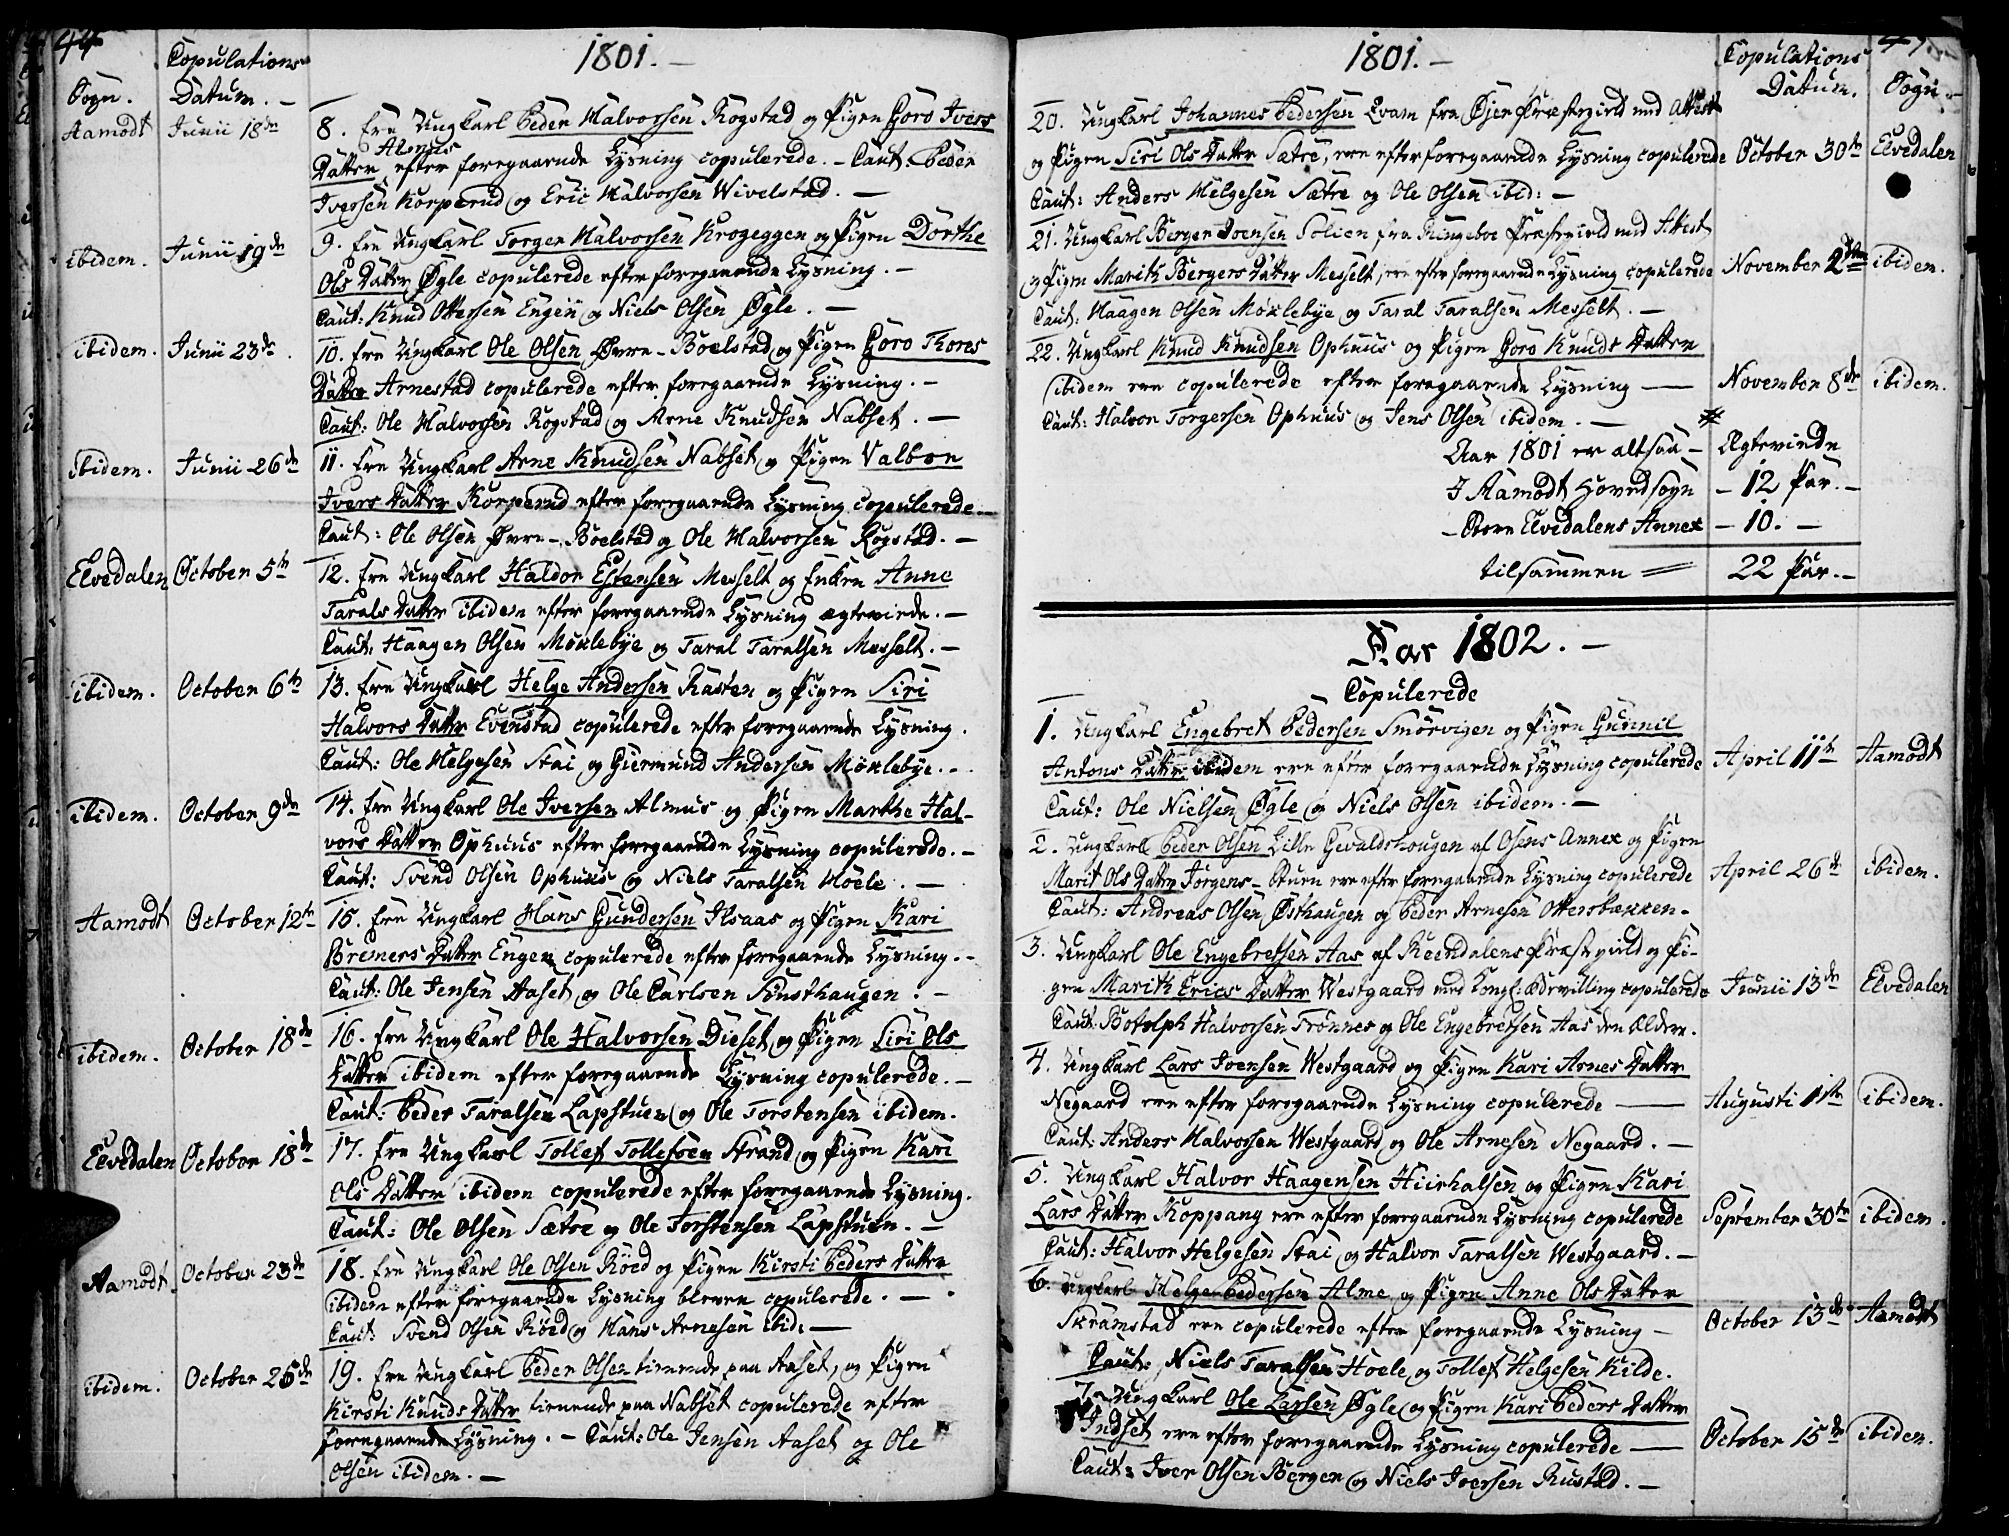 44
1801. –
Sogn.
Copulations
Datum. –
Aamodt
Junii 18de
8. Ere Ungkarl Peder Halvorsen Rogstad og Pigen Goro Ivers
Datter Almus efter foregaaende Lysning copulerede. – Caut: Peder
Iversen Korperud og Eric Halvorsen Wivelstad. –
ibidem.
Junii 19de
9. Ere Ungkarl Torger Halvorsen Krogeggen og Pigen Dorthe
Ols Datter Øgle copulerede efter foregaaende Lysning. –
Caut: Knud Ottersen Engen og Niels Olsen Øgle. –
ibidem.
Junii 23de.
10. Ere Ungkarl Ole Olsen Øvre-Boelstad og Pigen Goro Thores
Datter Arnestad copulerede efter foregaaende Lysning. –
Caut: Ole Halvorsen Rogstad og Arne Knudsen Nabset. –
ibidem.
Junii 26de
11. Ere Ungkarl Arne Knudsen Nabset og Pigen Valbor
Ivers Datter Korperud efter foregaaende Lysning copulerede. –
Caut: Ole Olsen Øvre-Boelstad og Ole Halvorsen Rogstad. –
Elvedalen
October 5te
12. Ere Ungkarl Haldor Estensen Messelt og Enken Anne
Tarals Datter ibidem efter foregaaende Lysning ægteviede. –
Caut: Haagen Olsen Møklebye og Taral Taralsen Messelt. –
ibidem.
October 6te
13. Ere Ungkarl Helge Andersen Rasten og Pigen Siri
Halvors Datter Evenstad copulerede efter foregaaende Lysning.
Caut: Ole Helgesen Stai og Giermund Andersen Møklebye. –
ibidem.
October 9de
14. Ere Ungkarl Ole Iversen Almus og Pigen Marthe Hal-
vors Datter Ophuus efter foregaaende Lysning copulerede. –
Caut: Svend Olsen Ophuus og Niels Taralsen Hoele. –
Aamodt
October 12te
15. Ere Ungkarl Hans Gundersen Ilsaas og Pigen Kari
Bremers Datter Engen copulerede efter foregaaende Lysning. –
Caut: Ole Jensen Aaset og Ole Carlsen Sønsthaugen. –
ibidem.
October 18de
16. Ere Ungkarl Ole Halvorsen Dieset og Pigen Siri Ols
Datter ibidem efter foregaaende Lysning copulerede. –
Caut: Peder Taralsen Lapstuen og Ole Torstensen ibidem.
Elvedalen
October 18de
17. Ere Ungkarl Tollef Tollefsen Strand og Pigen Kari
Ols Datter ibidem copulerede efter foregaaende Lysning.
Caut: Ole Olsen Sætre og Ole Torstensen Lapstuen. –
Aamodt.
October 23de
18. Ere Ungkarl Ole Olsen Röed og Pigen Kirsti Peders Datter
ibidem efter foregaaende Lysning bleven copulerede. –
Caut: Svend Olsen Röed og Hans Arnesen ibid: –
ibidem.
October 25de
19. Ere Ungkarl Peder Olsen tienende paa Aaset, og Pigen
Kirsti Knuds Datter tienende paa Nabset copulerede efter
foregaaende Lysning. – Caut: Ole Jensen Aaset og Ole
Olsen ibidem. –
1801. –
Copulations
Datum.
Sogn.
20. Ungkarl Johannes Pedersen Qvam fra Øjer Præstegield med Attest
og Pigen Siri Ols Datter Sætre, ere efter foregaaende Lysning copulerede
October 30te
Elvedalen
Caut: Anders Helgesen Sætre og Ole Olsen ibid: –
21. Ungkarl Berger Joensen Solien fra Ringeboe Præstegield med Attest
og Pigen Marith Bergers Datter Messelt, ere efter foregaaende Lysning copulerede
November 2den
ibidem.
Caut: Haagen Olsen Møklebye og Taral Taralsen Messelt. –
22. Ungkarl Knud Knudsen Ophuus og Pigen Goro Knuds Datter
ibidem ere copulerede efter foregaaende Lysning –
November 8de
ibidem.
Caut: Halvor Torgersen Ophuus og Jens Olsen ibidem. –
Aar 1801 er altsaa – Ægteviede
I Aamodt Hovedsogn – 12 Par. –
– Store Elvedalens Annex – 10. –
tilsammen = 22 Par. –
Aar 1802. –
Copulerede
1. Ungkarl Engebret Pedersen Smörvigen og Pigen Gunnil
Antons Datter ibidem ere efter foregaaende Lysning copulerede
April 11te
Aamodt
Caut: Ole Nielsen Øgle og Niels Olsen ibidem. –
2. Ungkarl Peder Olsen Lille Gevaldshougen af Osens Annex og Pigen
Marit Ols Datter Jorgens-Stuen ere efter foregaaende Lysning copulerede
April 26de
ibidem.
Caut: Andreas Olsen Østhaugen og Peder Arnesen Ottersbækken –
3. Ungkarl Ole Engebretsen Aas af Reendalens Præstegield og Pi-
gen Marith Erics Datter Westgaard med Kongl: ædervilling copulerede
Junii 13de
Elvedalen
Caut: Botolph Halvorsen Trönnes og Ole Engebretsen Aas den Ældere.
4. Ungkarl Lars Iversen Westgaard og Pigen Kari Arnes Datter
Negaard ere efter foregaaende Lysning copulerede –
Augusti 1ste
ibidem.
Caut: Anders Halvorsen Westgaard og Ole Arnesen Negaard. –
5. Ungkarl Halvor Haagensen Hiirhalsen og Pigen Kari
Lars Datter Koppang ere efter foregaaende Lysning copulerede
September 30te
ibidem.
Caut: Halvor Helgesen Stai og Halvor Taralsen Westgaard. –
6. Ungkarl Helge Pedersen Alme og Pigen Anne Ols Datter
Skramstad ere copulerede efter foregaaende Lysning –
October 13de
Aamodt
Caut: Niels Taralsen Hoele og Tollef Helgesen Kilde.
7. Ungkarl Ole Larsen Øgle og Pigen Kari Peders Datter
Indset ere efter foregaaende Lysning copulerede –
October 15de
ibidem.
Caut: Iver Olsen Berger og Niels Iversen Rustad. –